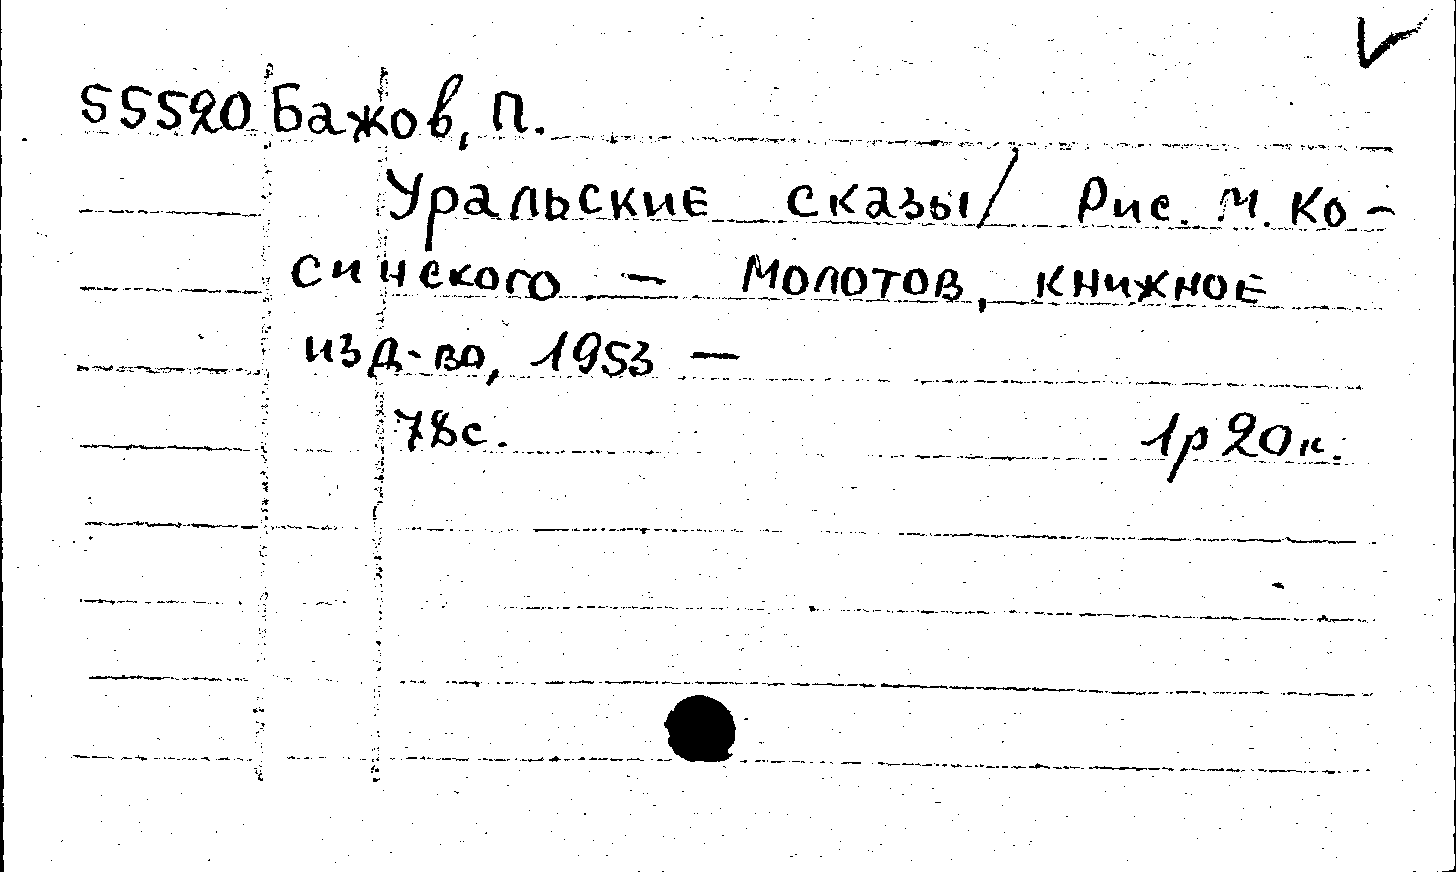 55520 Бажов, П.
Уральские сказы/ Рис. М. Ко-
синского — Молотов, книжное
изд-во, 1953 —
78с. 1р20к.